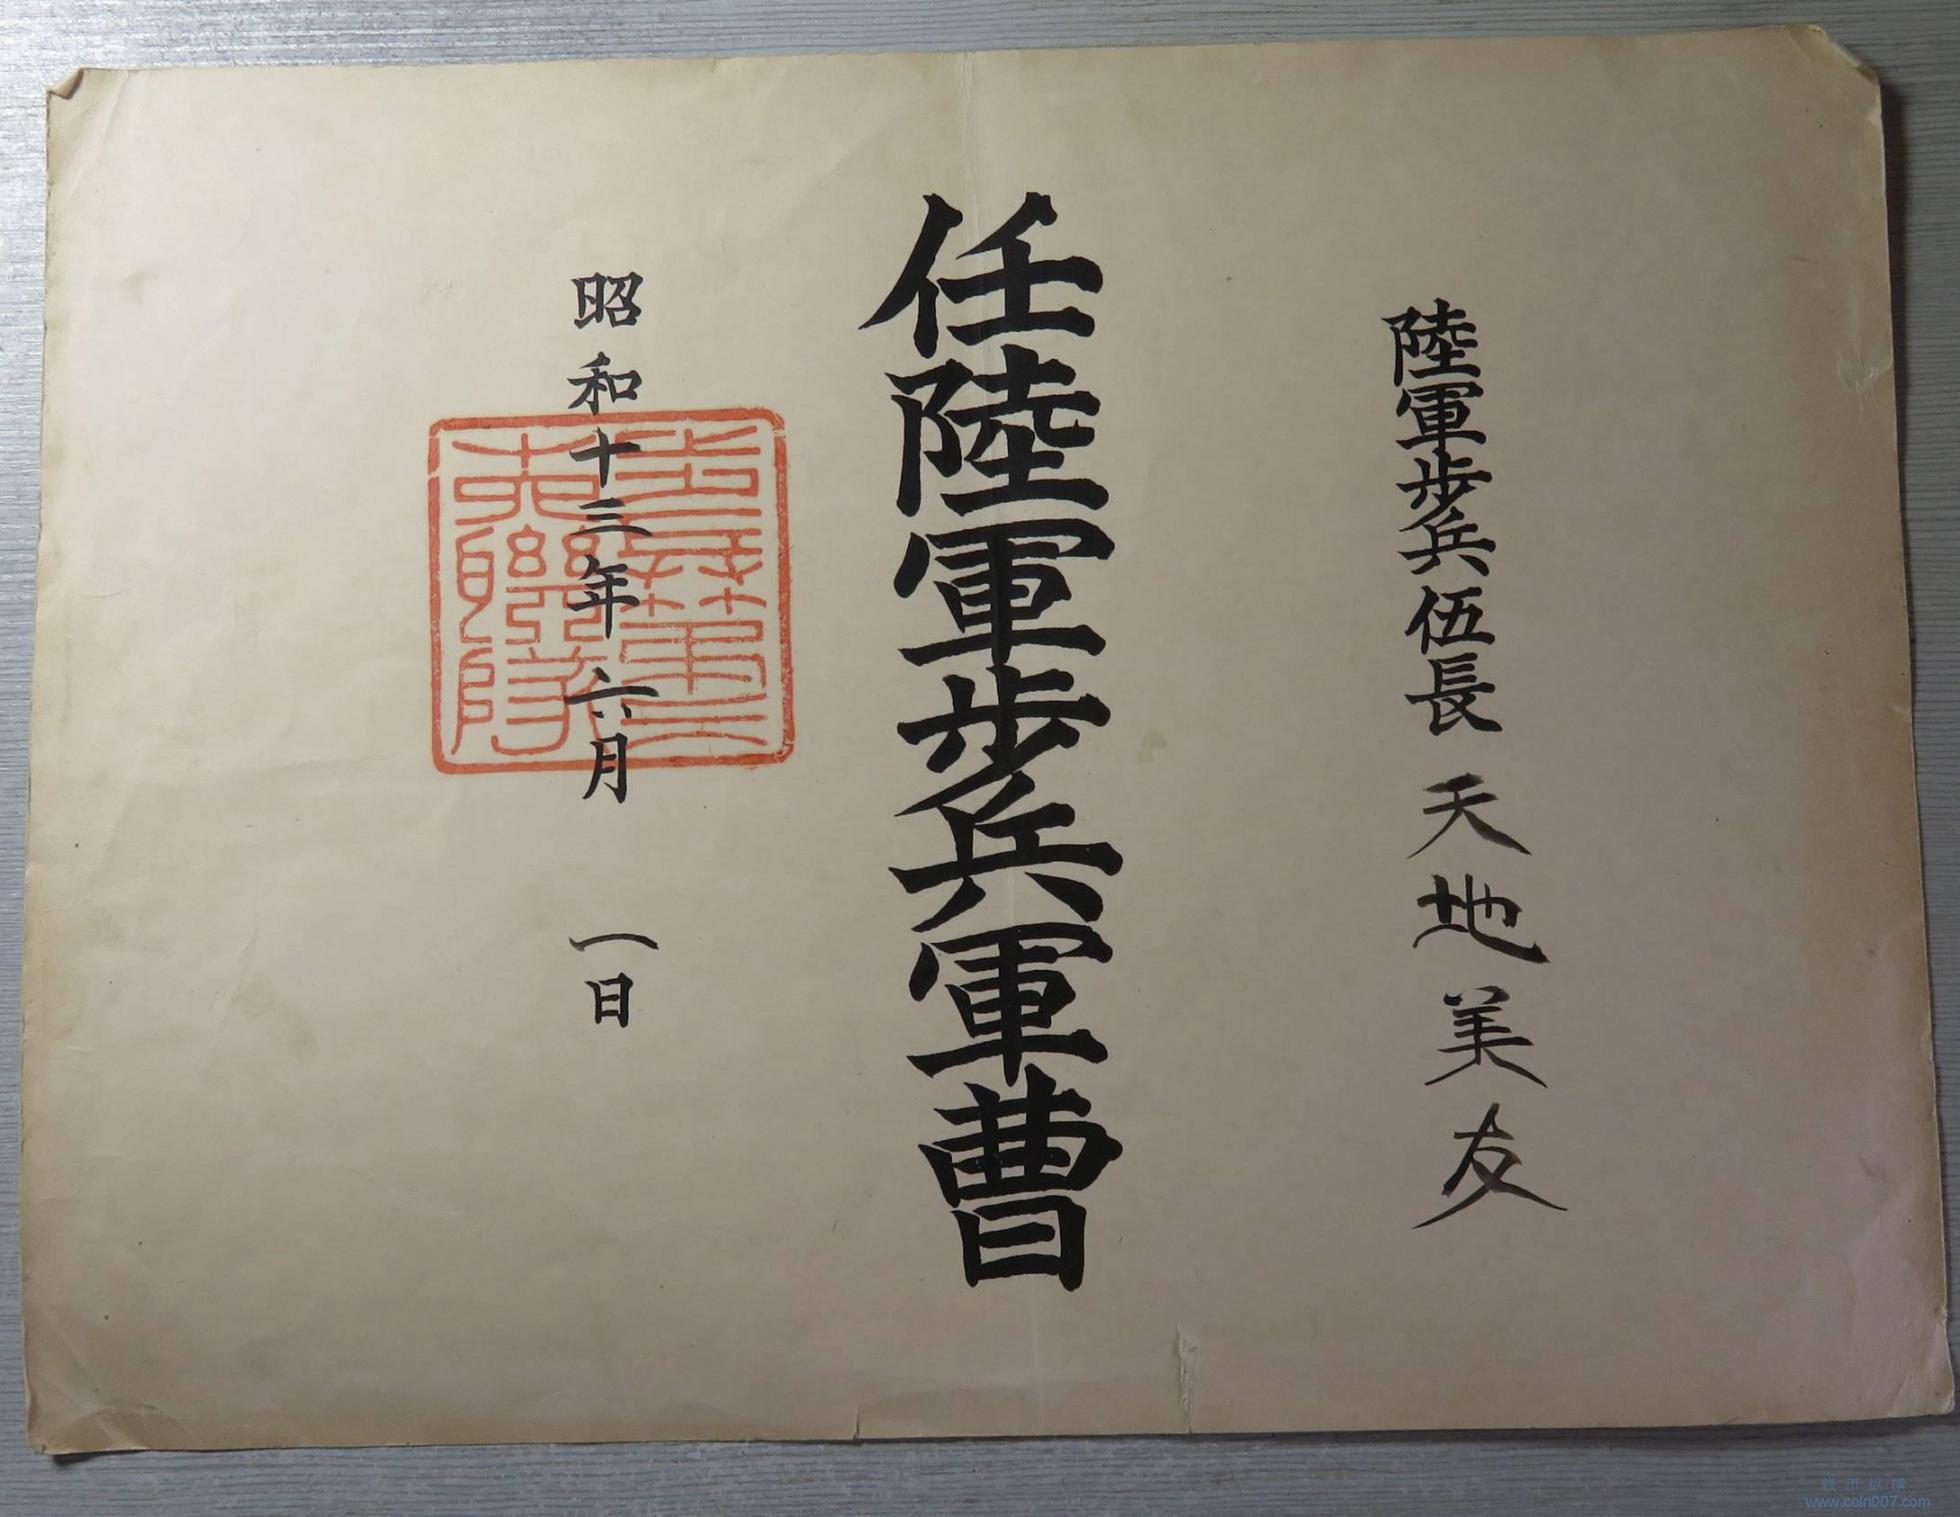 陸軍歩兵伍長 天地美友
任陸軍歩兵軍曹
昭和十三年六月 一日
钱币纵横
www.coin007.com